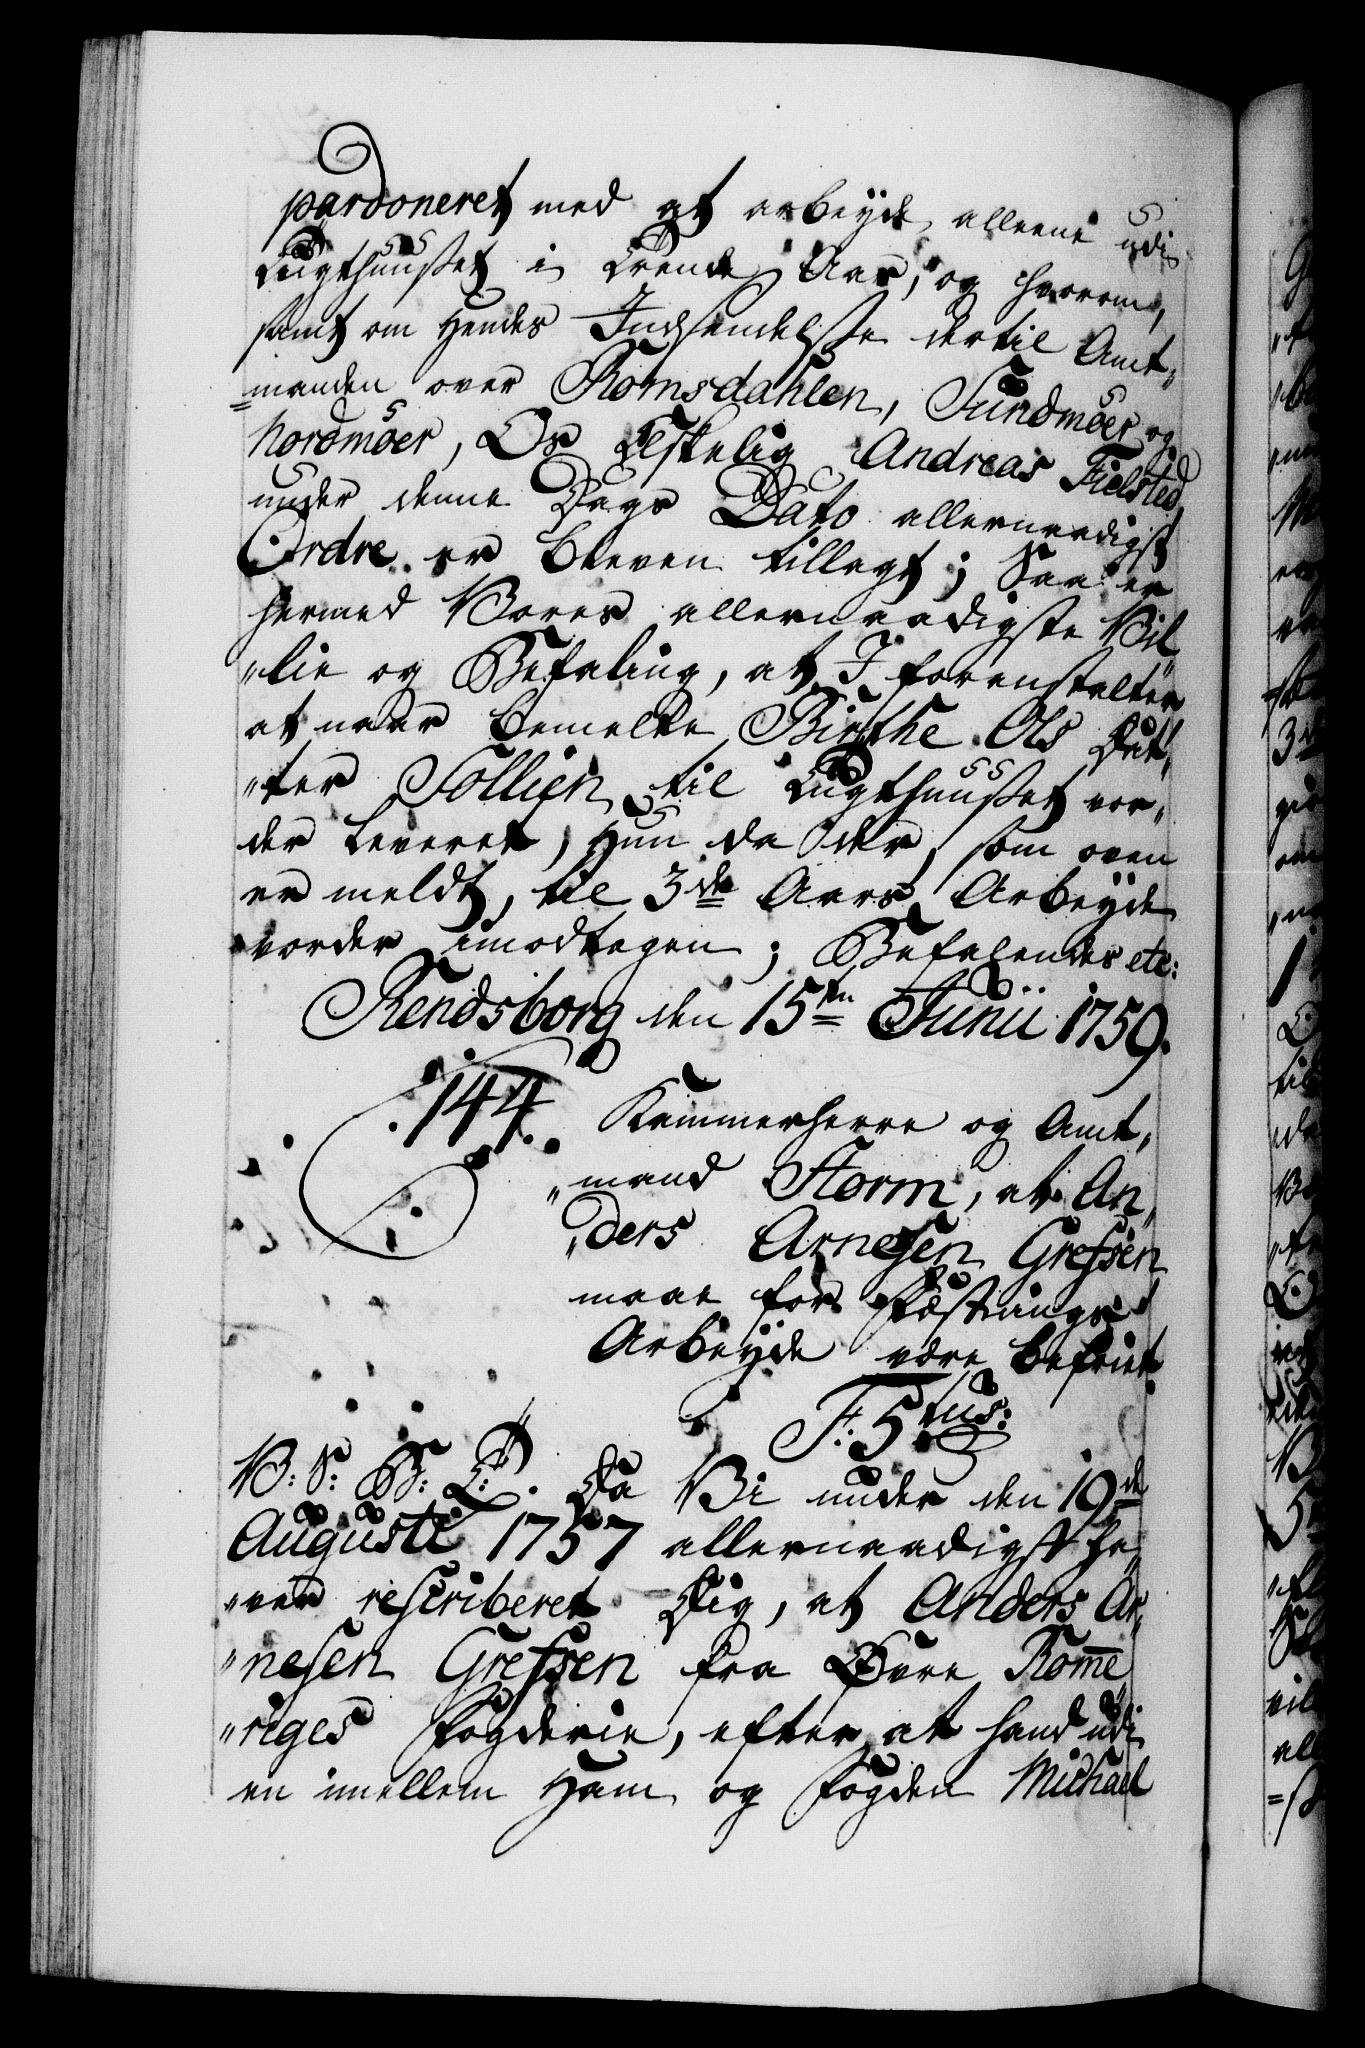 pardoneret med at arbeyde alleene udi
Tugthuuset i Trende Aar, og hvorom,
samt om Hendes Indsendelse dertil Amt„
„manden over Romsdahlen, Sundmöer og
Nordmöer, Os Elskelig Andreas Fielsted,
under denne Dags Dato allernaadigst
Ordre er bleven tillagt; Saa er
hermed Vores allernaadigste Vil„
„lie og Befaling, at I foranstalter
at naar bemelte Birthe Ols Dat„
„ter Tollien til Tugthuuset vor„
der leveret, Hun da der, som oven
er meldt, til 3de Aars Arbeyde
vorder imodtagen; Befalendes etc:
Rendsborg den 15ten Junii 1759.
144. Kammerherre og Amt„
„mand Storm, at An„
„ders Arnesen Grefsen
maae for Fæstnings
Arbeyde være befriet
F: 5tus:
V: S: G: T: Da Vi under den 19de
Augusti 1757 allernaadigst ha„
„ver rescriberet Dig, at Anders Ar„
„nesen Grefsen fra Øvre Rom̅e„
„riges Fogderie, efter at hand udi
en imellem Ham og Fogden Michael